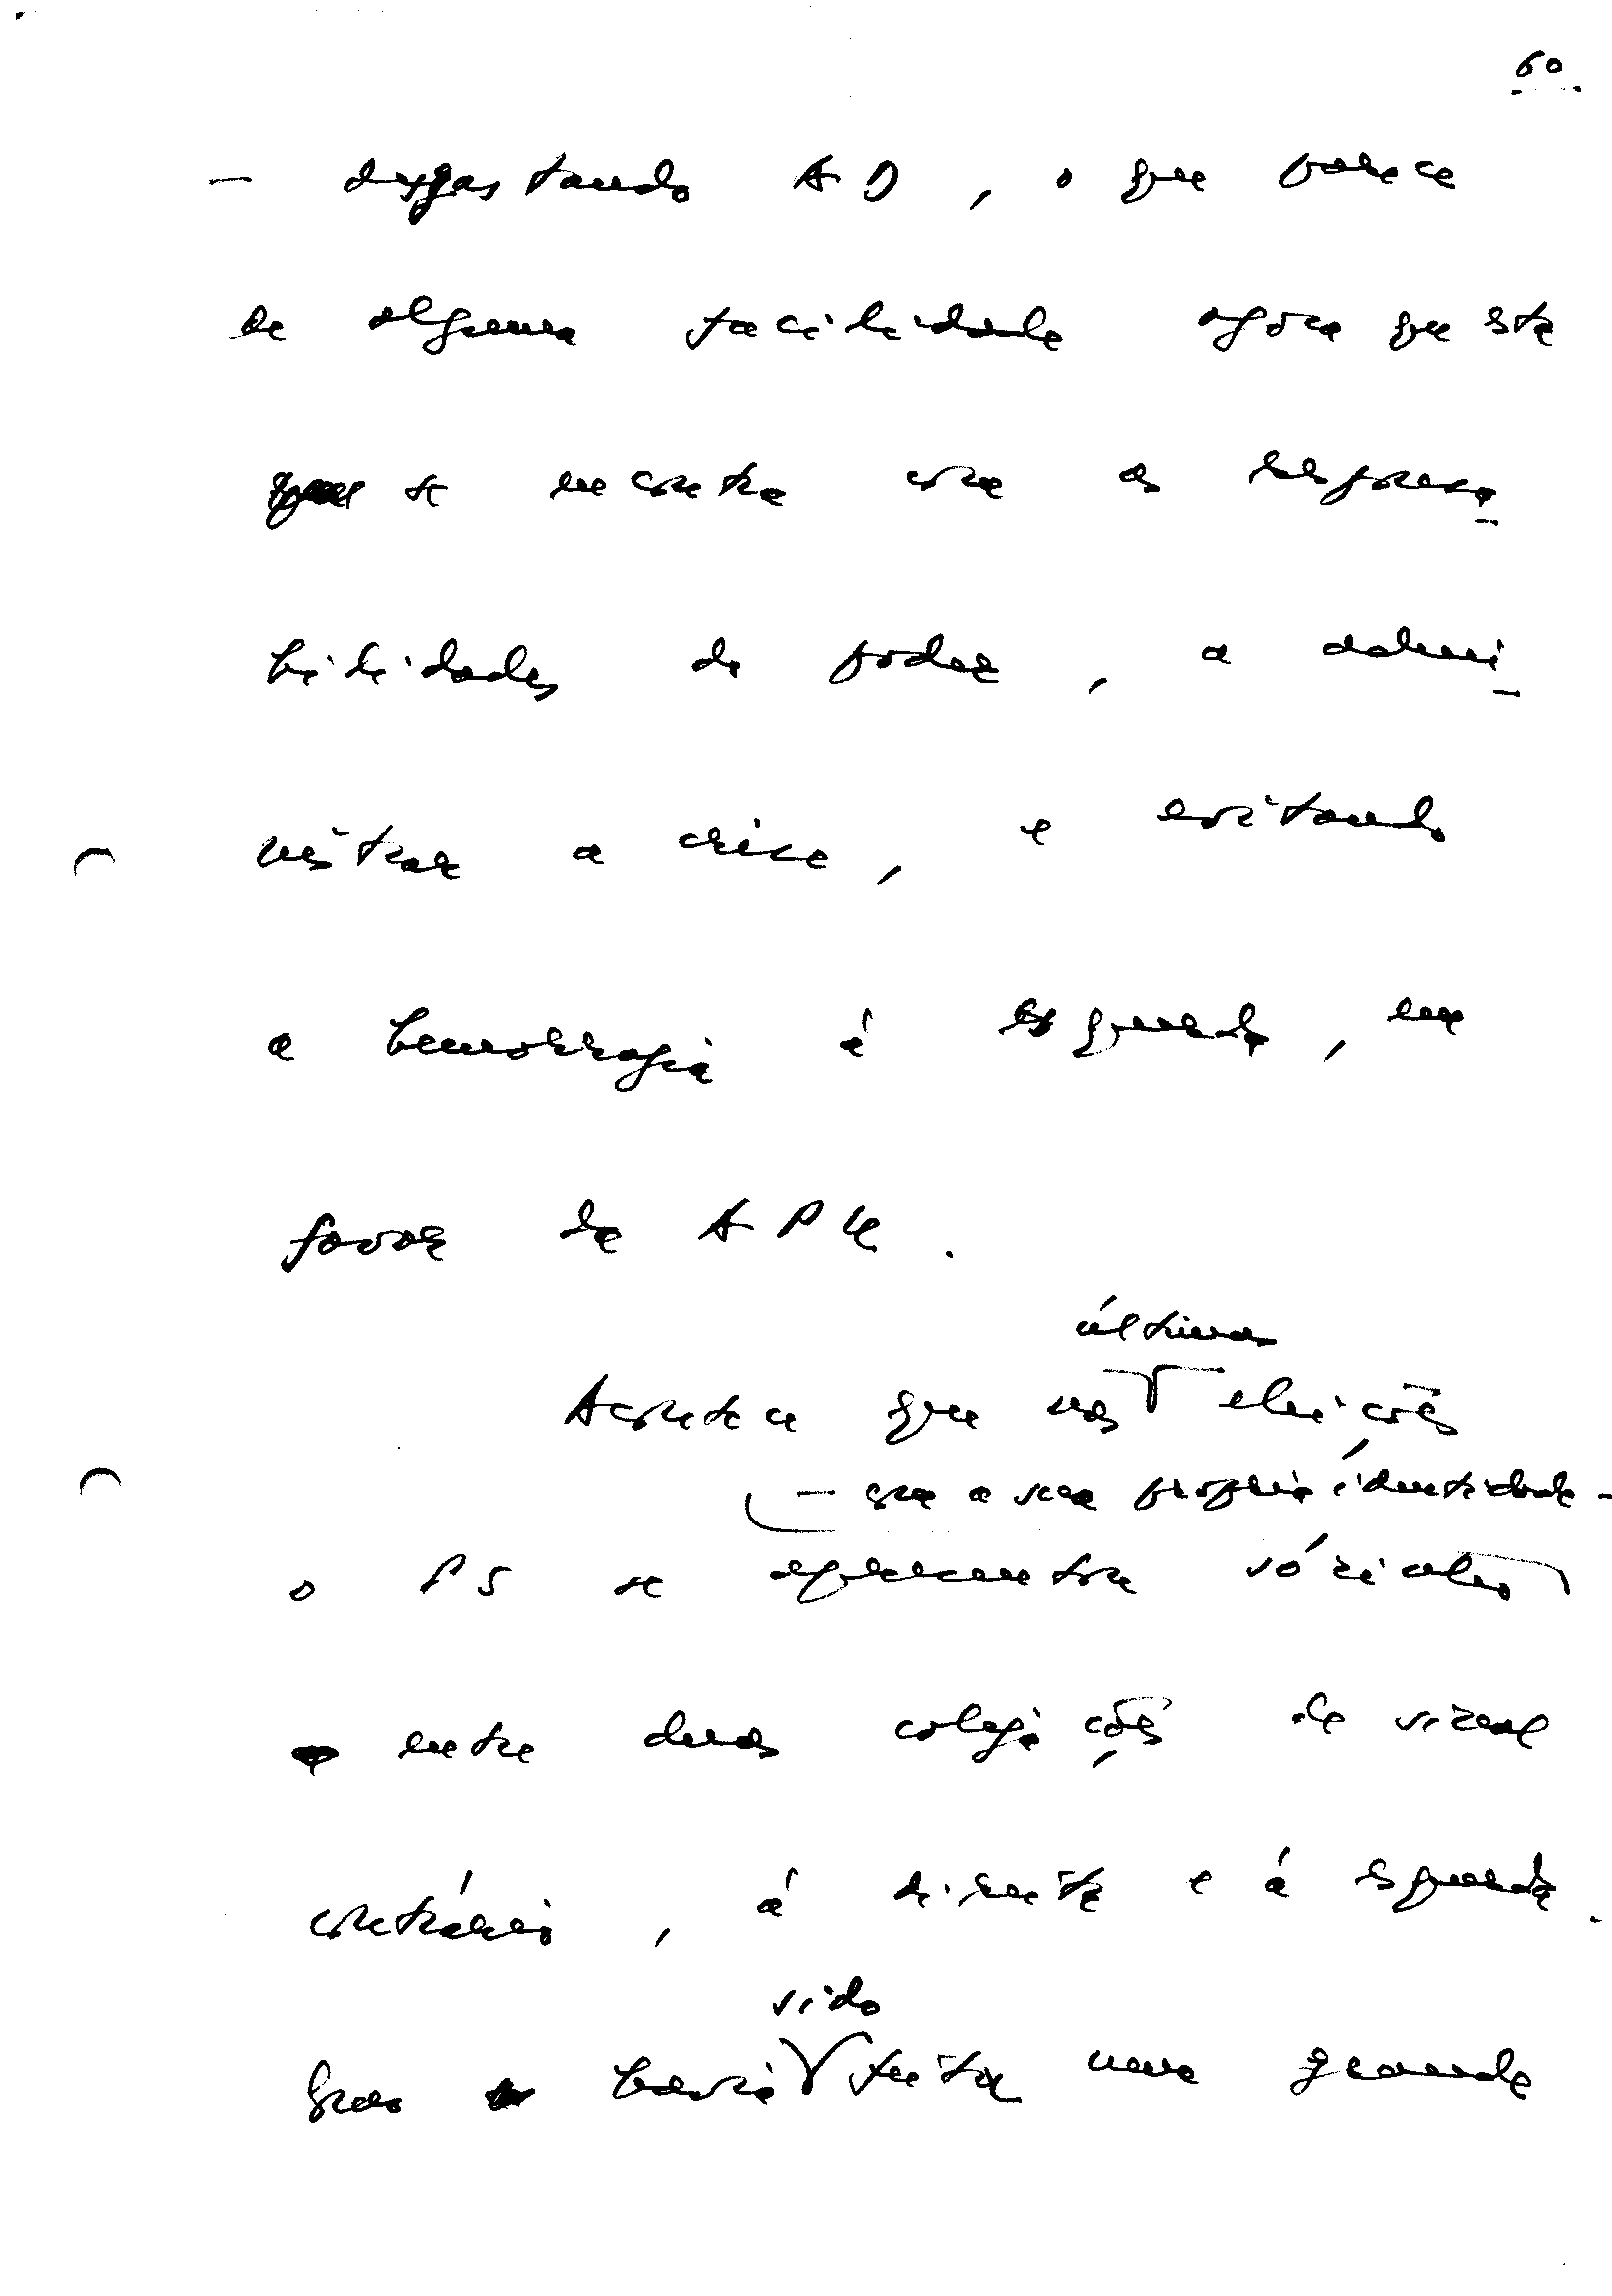 60
— desgastando AD, o que parece
de alguma facilidade agora que esta
se encontra com as responsa_
bilidades do poder, a admi_
nistrar a crise, e evitando
a hemorragia à esquerda, em
favor da APU.
últimas
Acontece que nas eleições
— com a sua própria identidade —
o PS se apresentou sózinho
entre duas coligações de sinal
contrário, à direita e à esquerda.
sido
havia feita uma grande